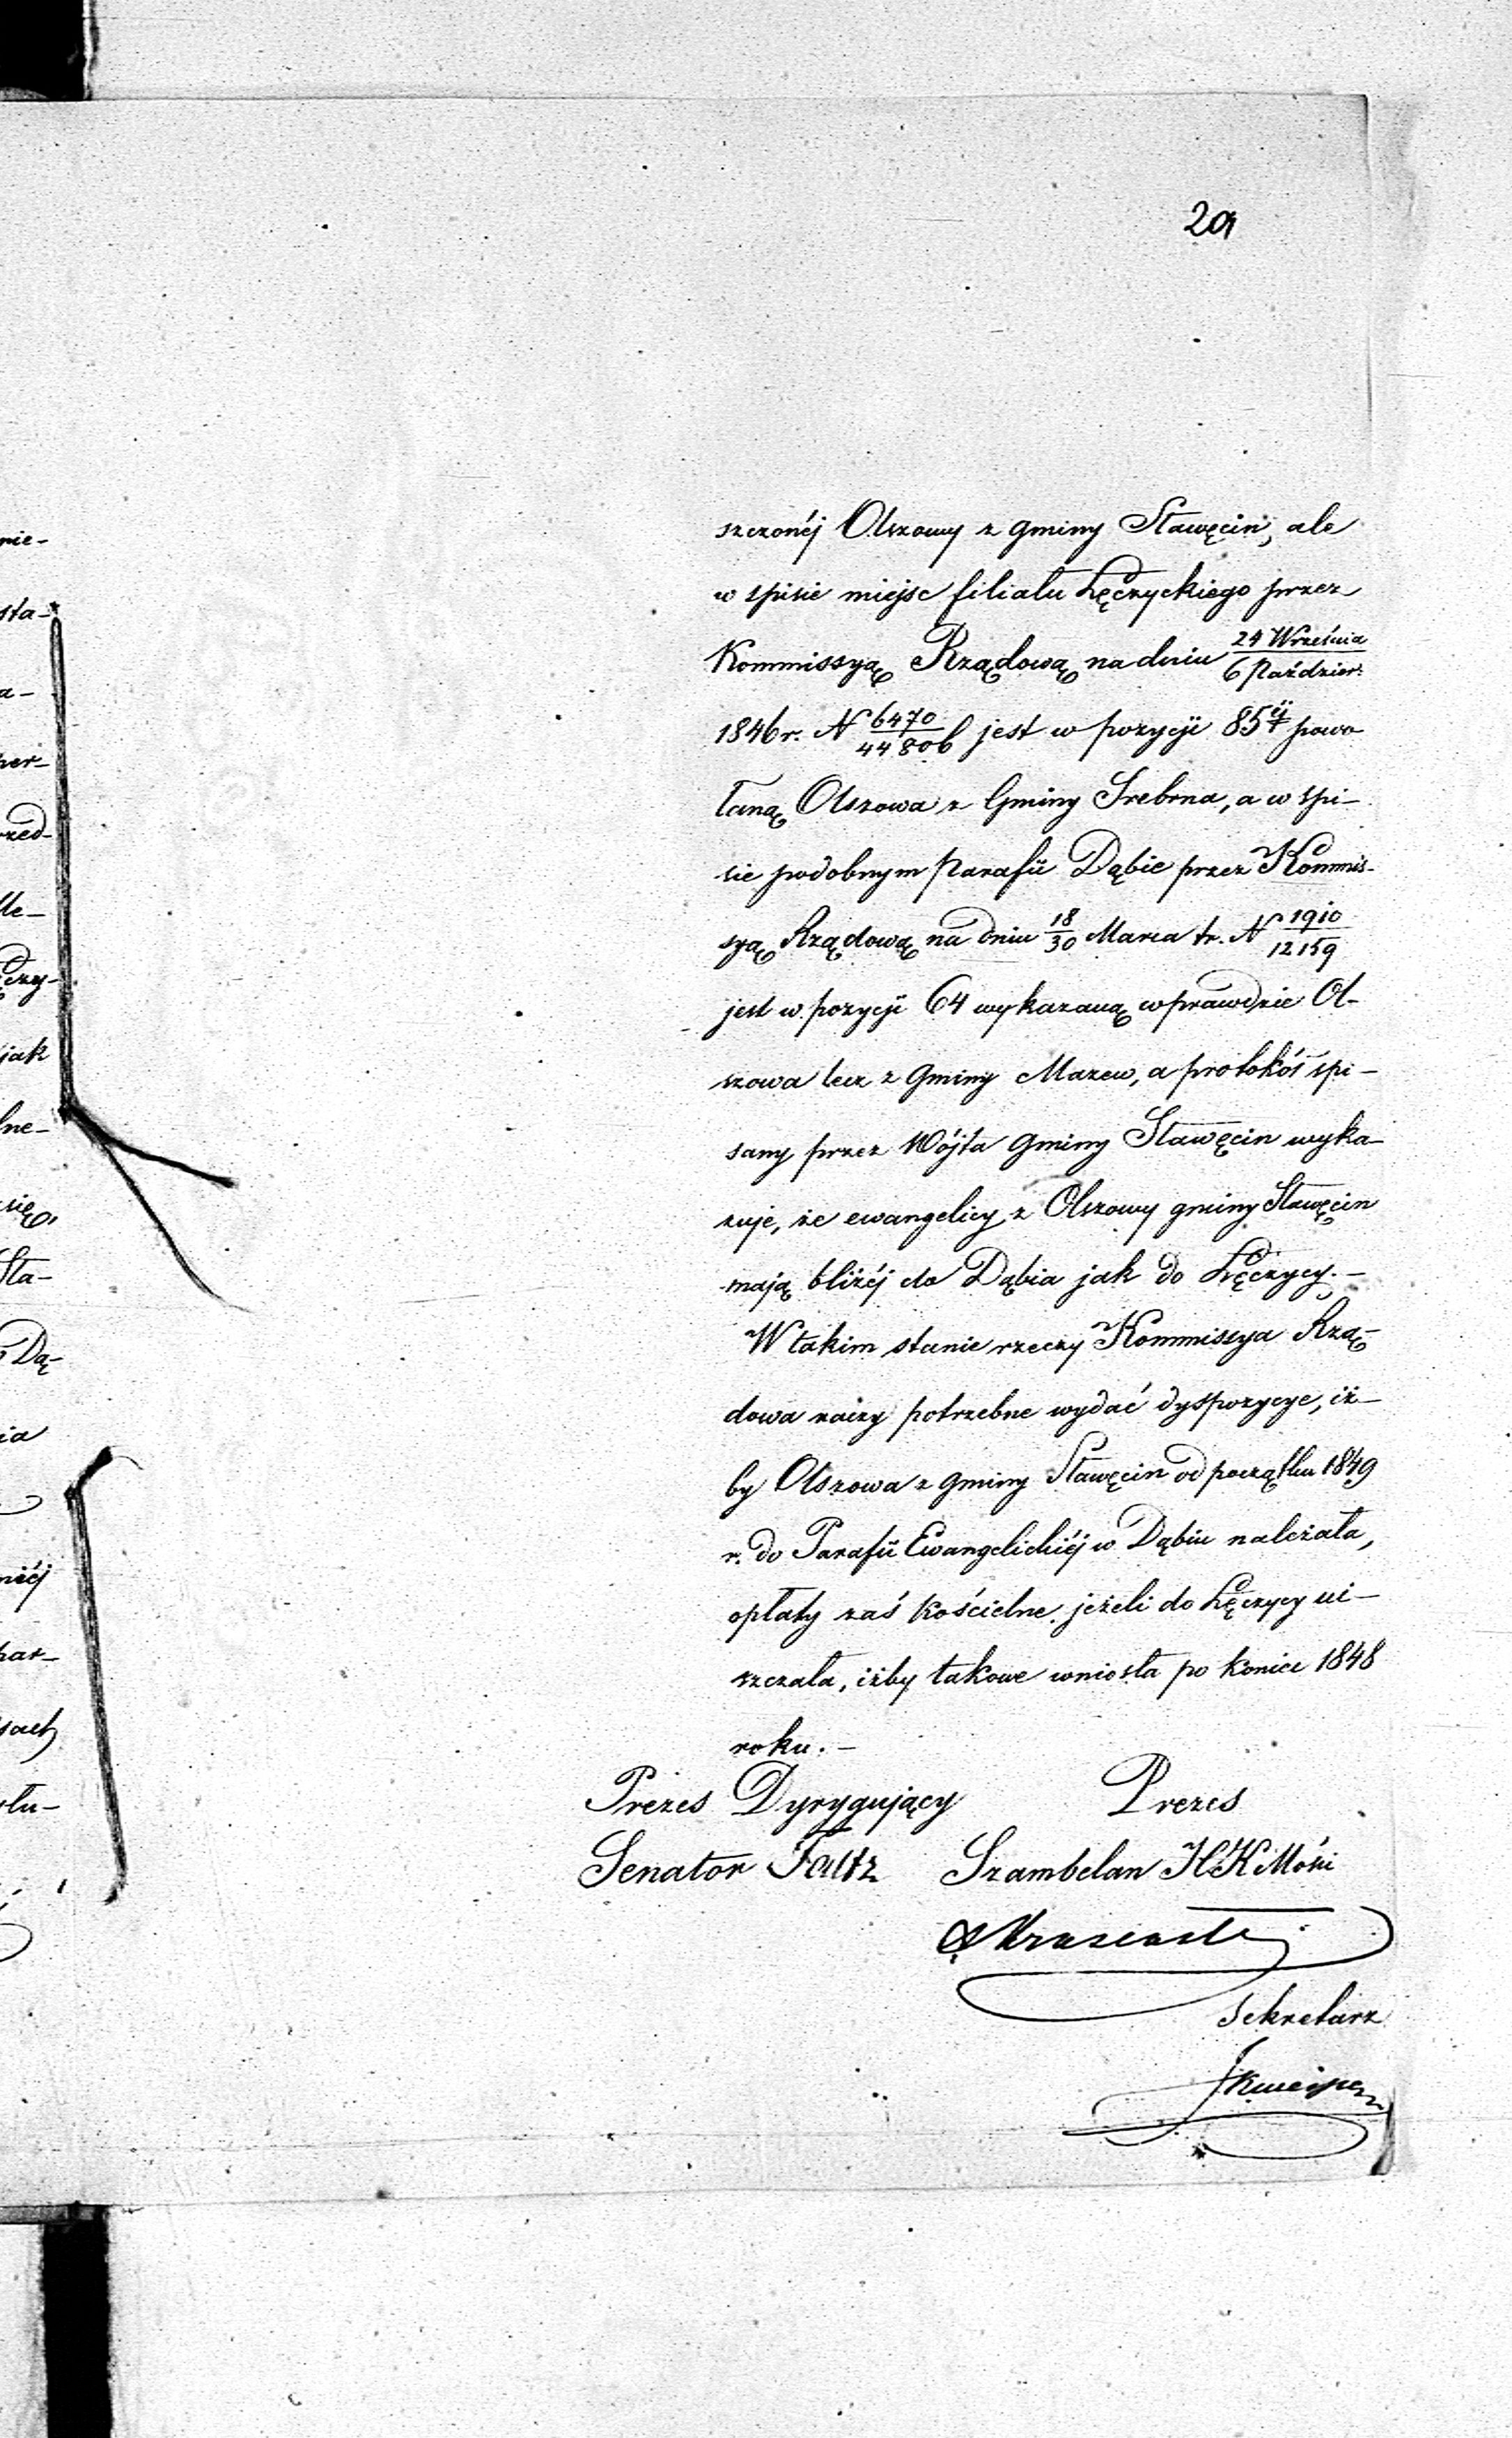 29
szczonéj Olszowy z gminy Sławęcin, ale
w spisie miejsc filiału Łęczyckiego przez
Kommissyą Rządową na dniu 24 Września / 6 Paździer:
1846 r. N 6470/44806 jest w pozycji 85éj powo
łaną Olszowa z Gminy Srebrna, a w spi-
sie podobnym Parafii Dąbie przez Kommis-
syą Rządową na dniu 18/30 Marca tr. N 1910/12159
jest w pozycji 64 wykazaną wprawdzie Ol-
szowa lecz z Gminy Mazew, a protokół spi-
sany przez Wójta Gminy Sławęcin wyka-
zuje, że ewangelicy z Olszowy gminy Sławęcin
mają bliżéj do Dąbia jak do Łęczycy. -
W takim stanie rzeczy Kommissya Rzą-
dowa raczy potrzebne wydać dyspozycye, iż-
by Olszowa z gminy Sławęcin od początku 1849
r. do Parafii Ewangelickiéj w Dąbiu należała,
opłaty zaś kościelne jeżeli do Łęczycy ui-
szczała, iżby takowe wniosła po koniec 1848
roku. -
Prezes Dyrygujący Prezes
Senator Faltz Szambelan JKMości
Sekretarz
nie-
sta-
a-
per-
rzed-
czy-
jak
lne-
się,
Sta-
Dą-
ia
niéj
par-
sach
słu-